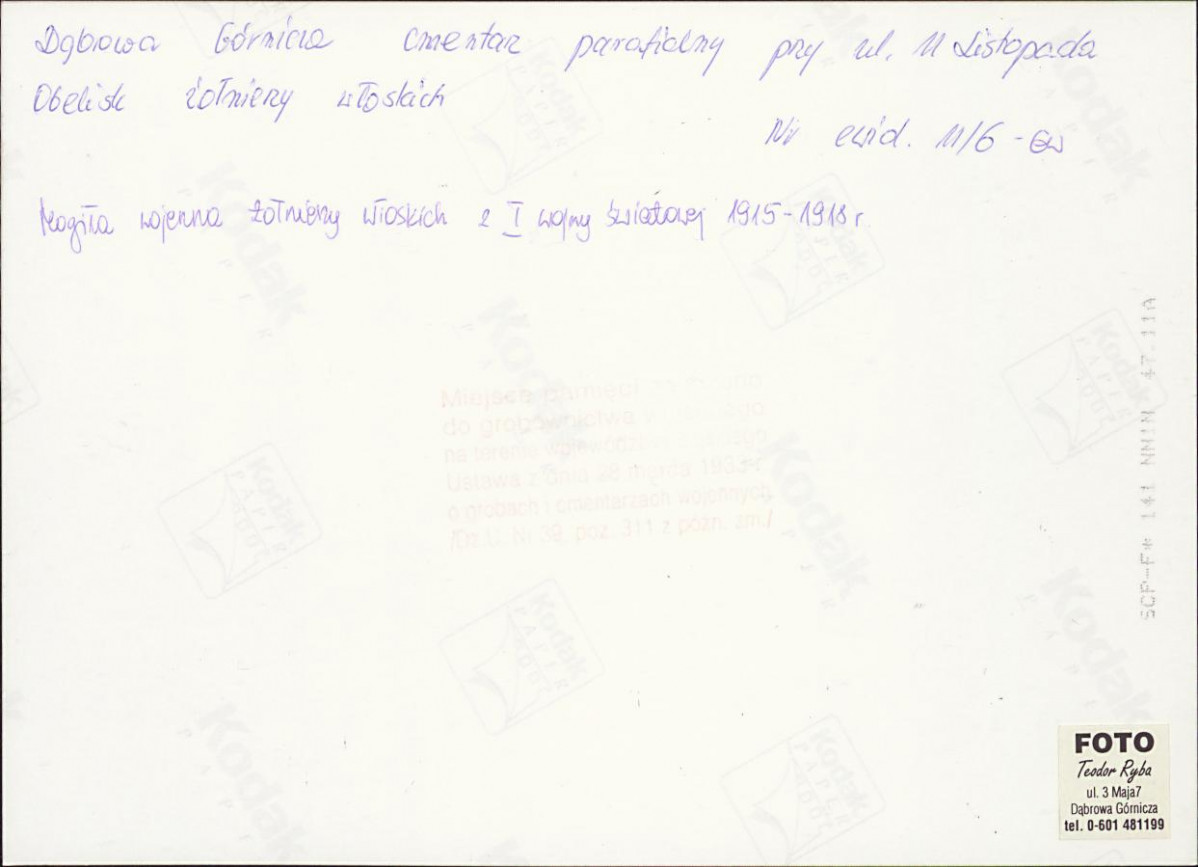 Dąbrowa Górnicza cmentarz parafialny przy ul. 11 Listopada
Obelisk żołnierzy włoskich
Nr ewid. 11/6 - GW
Mogiła wojenna żołnierzy włoskich z I wojny światowej 1915-1918 r.
Miejsce pamięci
do grobownictwa
na terenie województwa
Ustawa z dnia 28 marca 1933 r.
o grobach i cmentarzach wojennych
/Dz.U. Nr 39, poz. 311 z późn. zm./
FOTO
Teodor Ryba
ul. 3 Maja7
Dąbrowa Górnicza
tel. 0-601 481199